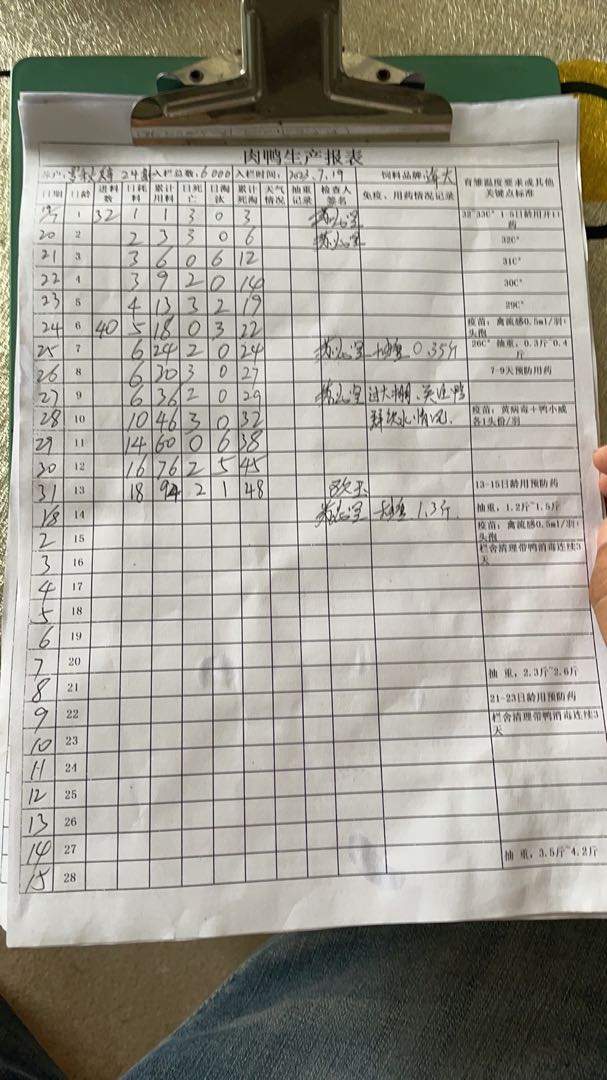 肉鸭生产报表
入栏总数: 6000 入栏时间: 2023.7.19 饲料品牌: 海大
日期 日龄 进料数 日耗料 累计用料 日死亡 日淘汰 累计死淘 天气情况 抽重记录 检查人签名 免疫、用药情况记录 育雏温度要求或其他关键点标准
19/7 1 32 1 1 3 0 3 32°33C° 1-5日龄用开口药
20 2 2 3 3 0 6 32C°
21 3 3 6 0 6 12 31C°
22 4 3 9 2 0 14 30C°
23 5 4 13 3 2 19 29C°
24 6 40 5 18 0 3 22 疫苗: 禽流感0.5ml/羽: 头孢
25 7 6 24 2 0 24 抽重 0.35斤 26C° 抽重, 0.3斤~0.4斤
26 8 6 30 3 0 27 7-9天预防用药
27 9 6 36 2 0 29 过大棚、关注鸭
28 10 10 46 3 0 32 群饮水情况. 疫苗: 黄病毒+鸭小威各1头份/羽
29 11 14 60 0 6 38
30 12 16 76 2 5 45
31 13 18 94 2 1 48 13-15日龄用预防药
1/8 14 1.3斤. 抽重, 1.2斤~1.5斤
2 15 疫苗: 禽流感0.5ml/羽: 头孢
3 16 栏舍清理带鸭消毒连续3天
4 17
5 18
6 19
7 20
8 21 抽 重, 2.3斤~2.6斤
9 22 21-23日龄用预防药
10 23 栏舍清理带鸭消毒连续3天
11 24
12 25
13 26
14 27
15 28 抽 重, 3.5斤~4.2斤